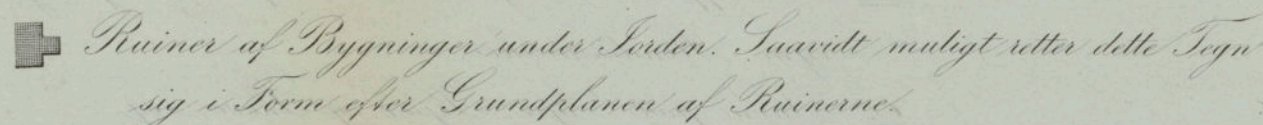 Ruiner af Bygninger under Jorden. Saavidt muligt retter dette Tegn
sig i Form efter Grundplanen af Ruinerne.